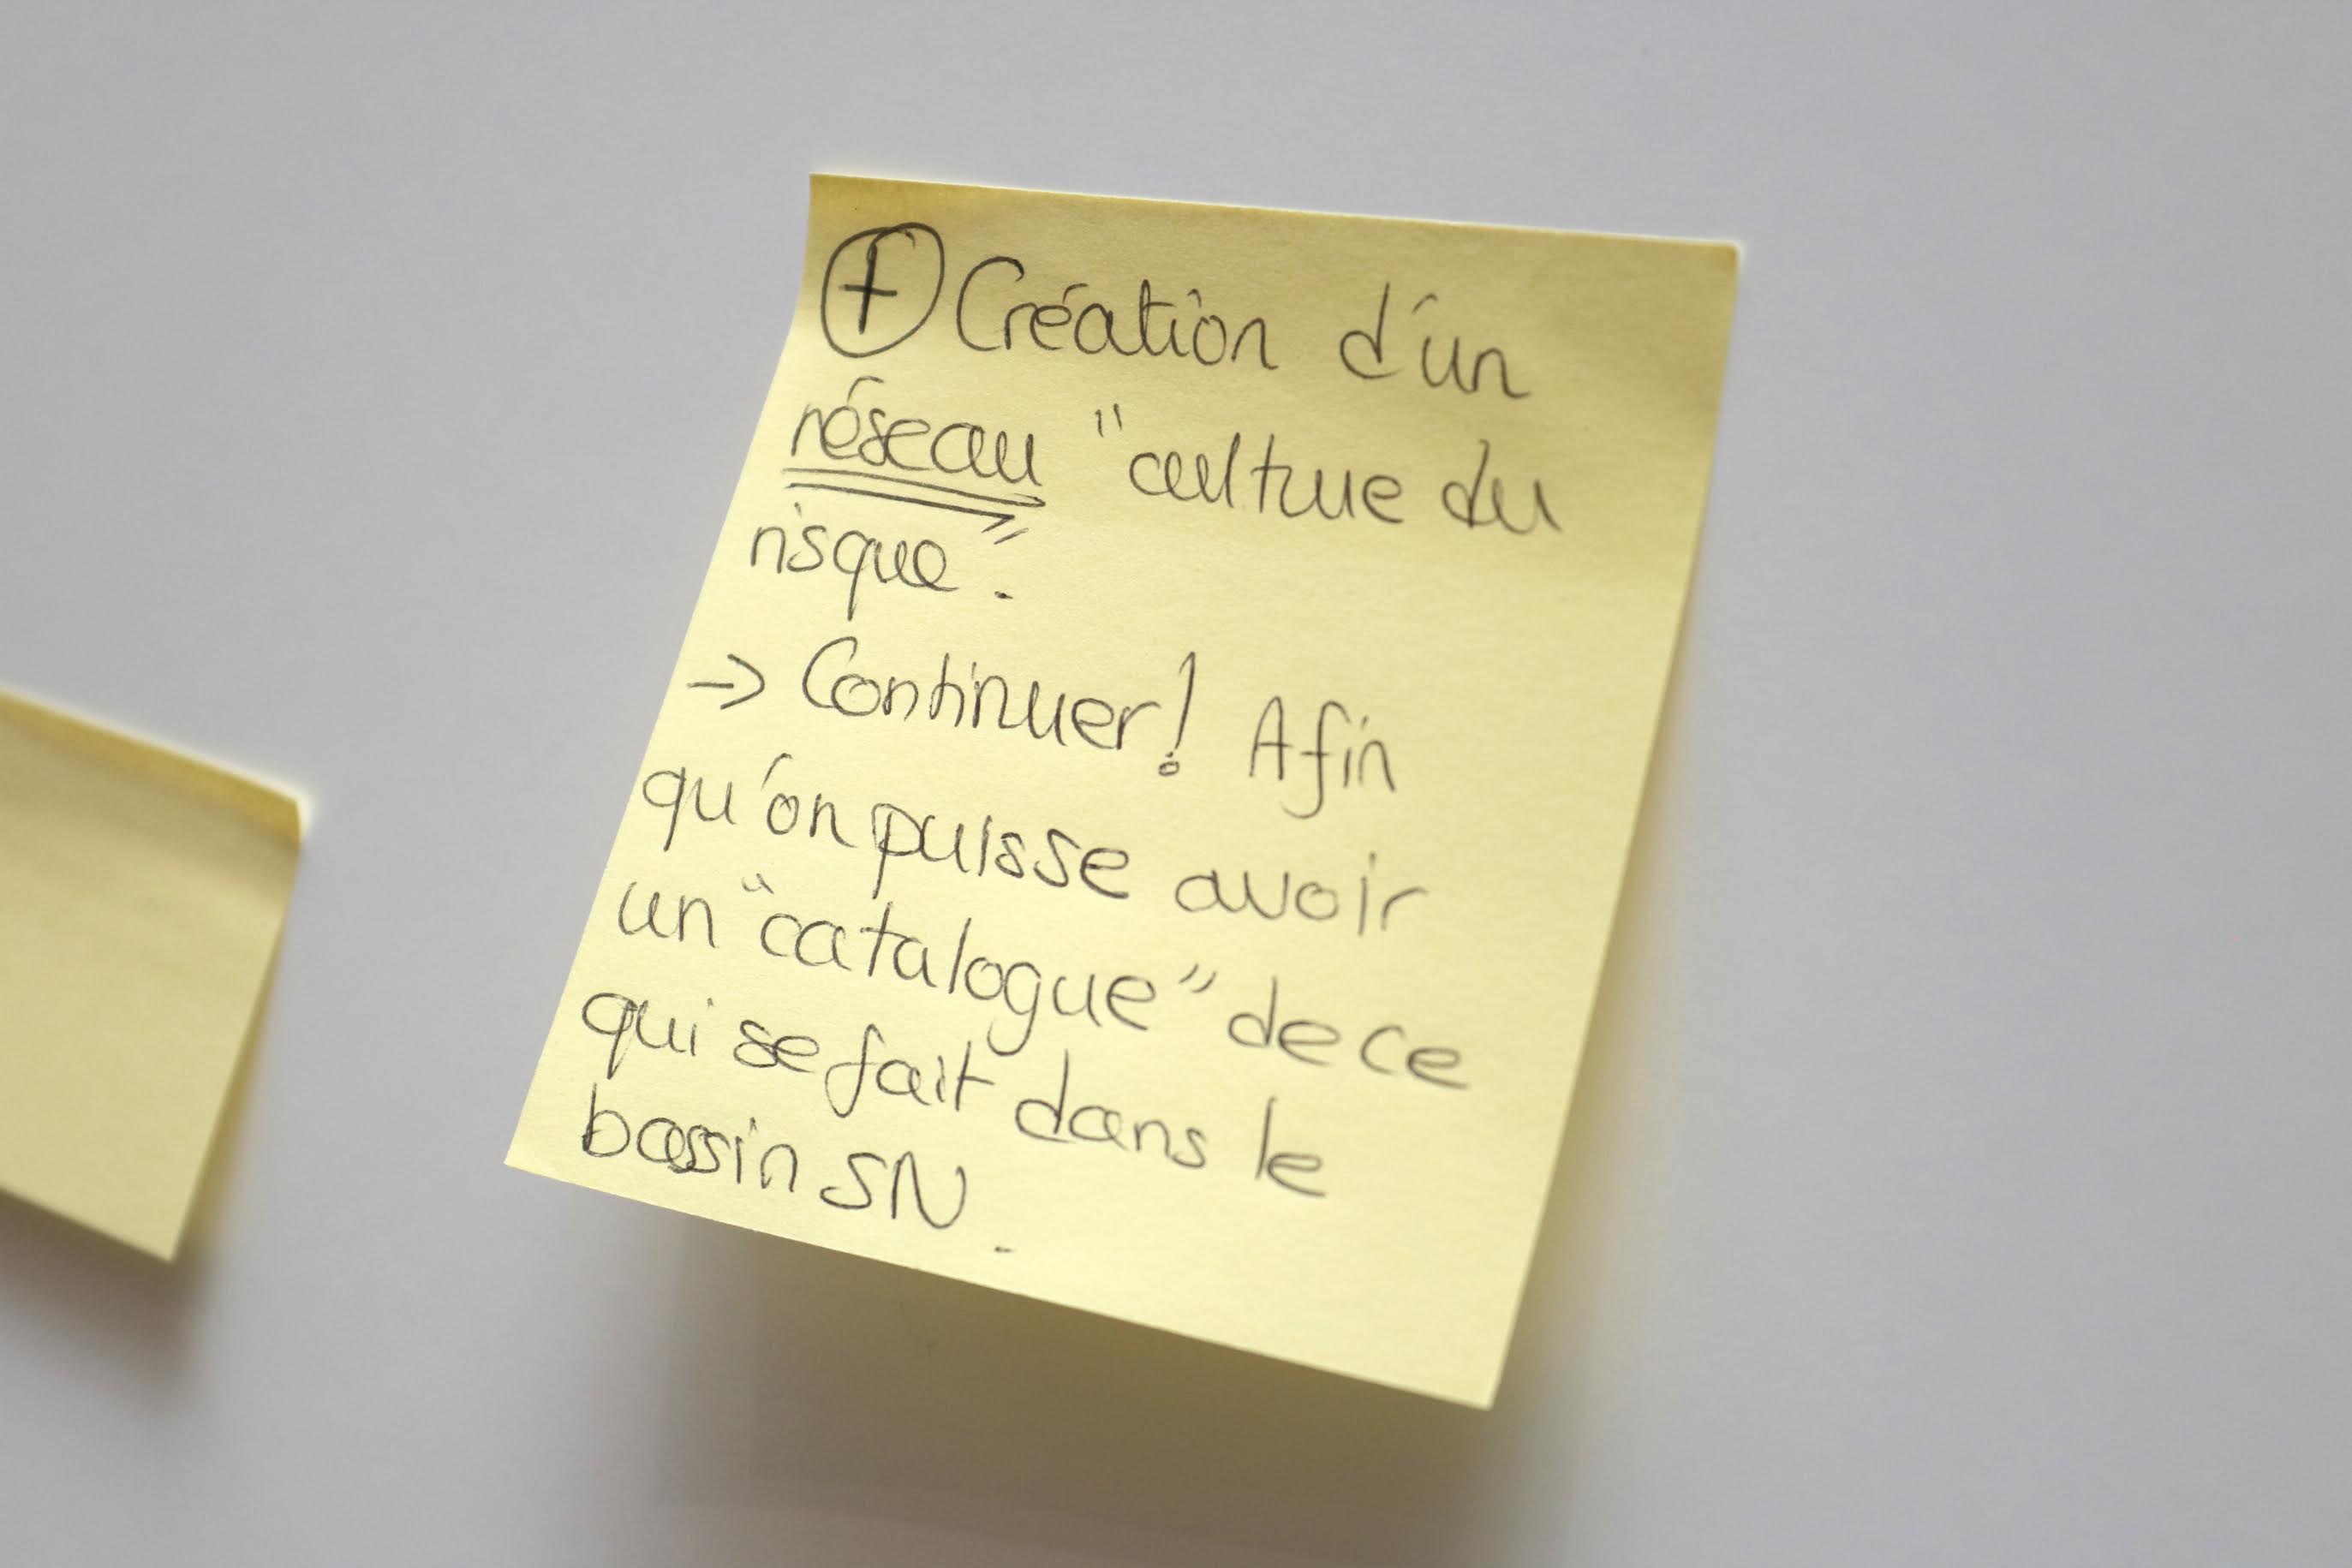 ⊕ Création d'un
réseau "culture du
risque".
-> Continuer! Afin
qu'on puisse avoir
un "catalogue" de ce
qui se fait dans le
bassin SN.